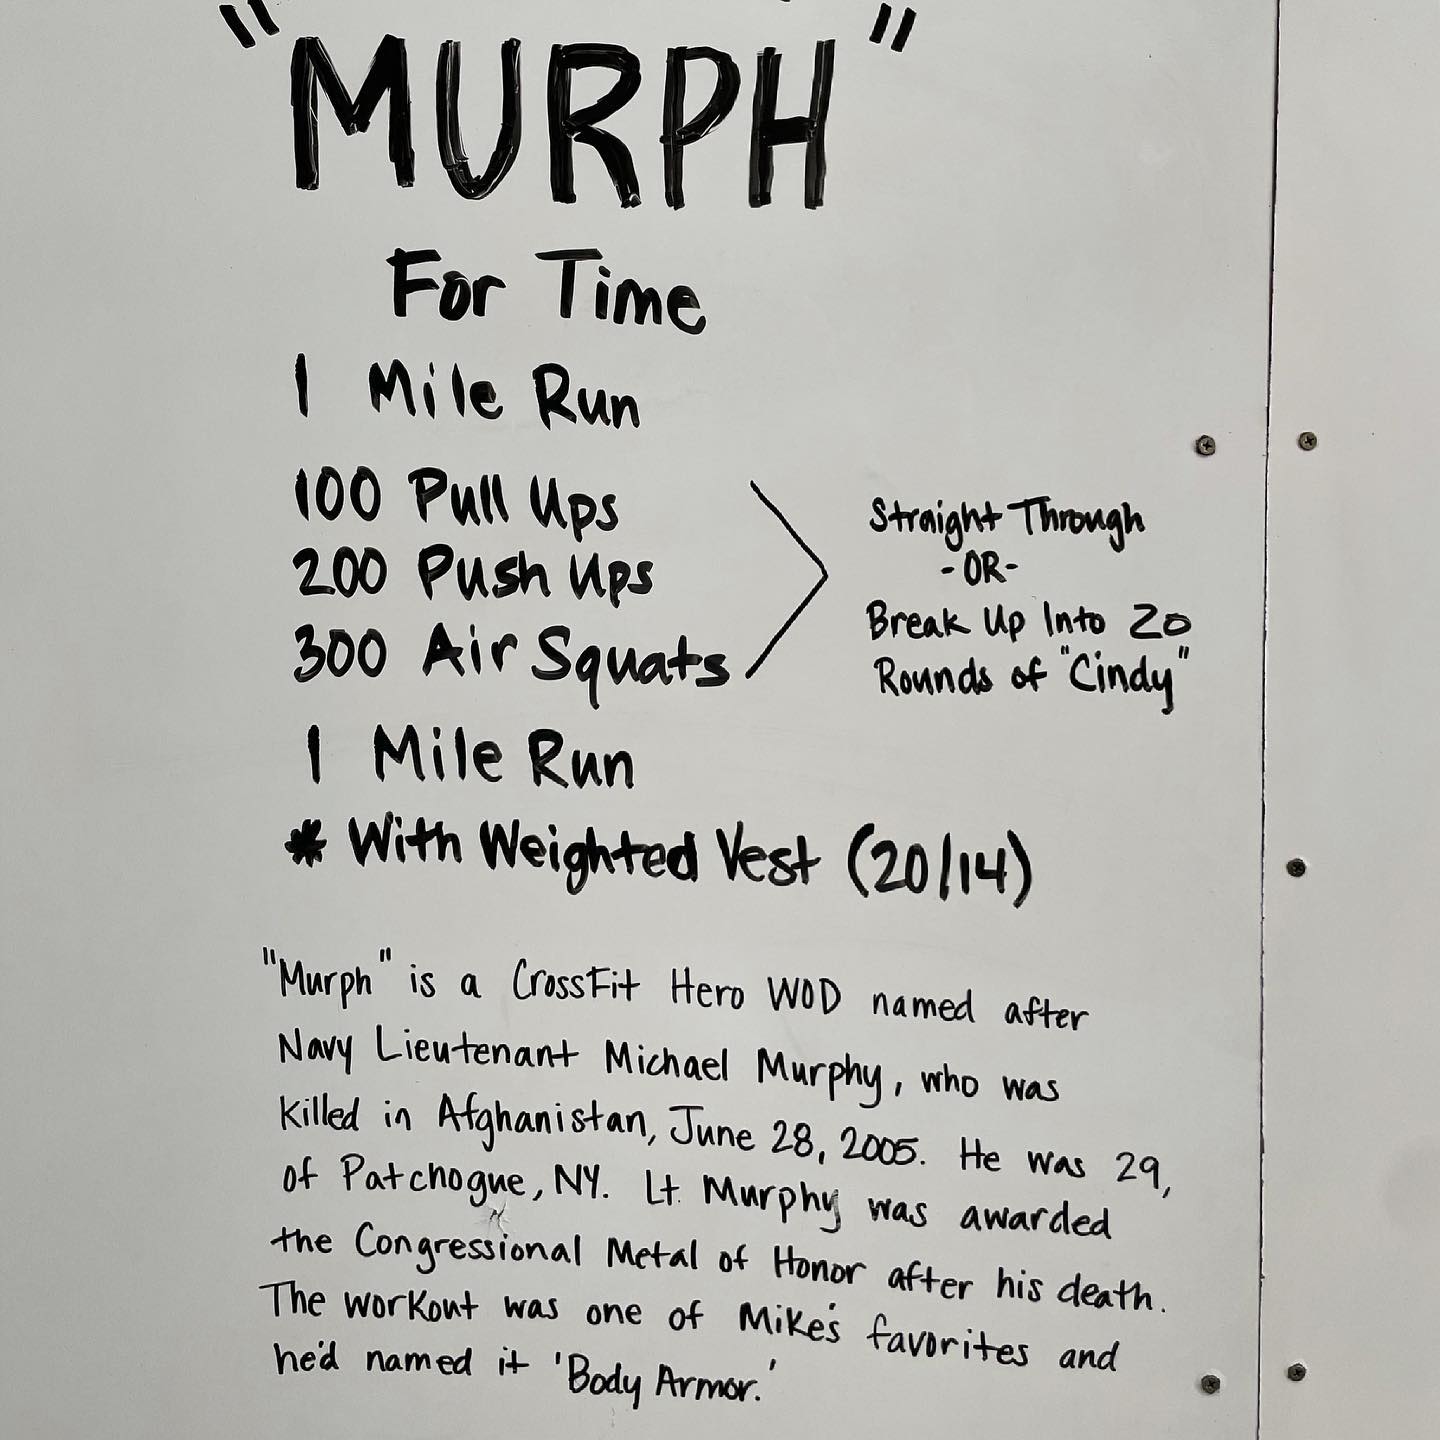 "MURPH"
For Time
1 Mile Run
100 Pull Ups
200 Push Ups
300 Air Squats
Straight Through
-OR-
Break Up Into 20
Rounds of "Cindy"
1 Mile Run
* With Weighted Vest (20/14)
"Murph" is a CrossFit Hero WOD named after
Navy Lieutenant Michael Murphy, who was
killed in Afghanistan, June 28, 2005. He was 29,
of Patchogue, NY. Lt. Murphy was awarded
the Congressional Metal of Honor after his death.
The workout was one of Mike's favorites and
he'd named it 'Body Armor.'